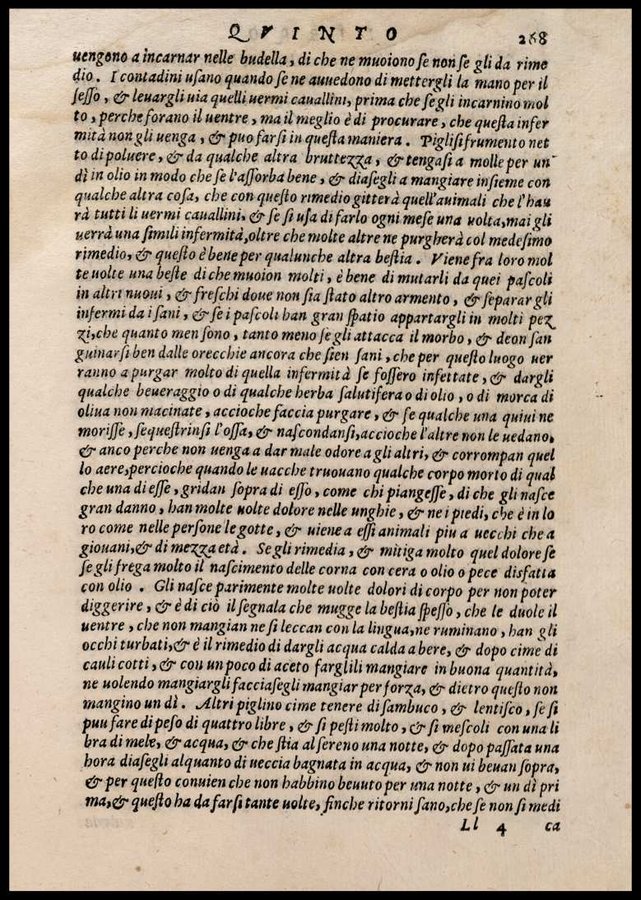 QVINTO 268
uengono a incarnar nelle budella, di che ne muoiono se non se gli da rime
dio. I contadini usano quando se ne auuedono di mettergli la mano per il
sesso, & leuargli uia quelli uermi cauallini, prima che se gli incarnino mol
to, perche forano il uentre, ma il meglio è di procurare, che questa infer
mità non gli uenga, & puo farsi in questa maniera. Piglisi frumento net
to di poluere, & da qualche altra bruttezza, & tengasi a molle per un
dì in olio in modo che se l'assorba bene, & diasegli a mangiare insieme con
qualche altra cosa, che con questo rimedio gitterà quell'animali che l'hau
rà tutti li uermi cauallini, & se si usa di farlo ogni mese una uolta, mai gli
uerrà una simili infermità, oltre che molte altre ne purgherà col medesimo
rimedio, & questo è bene per qualunche altra bestia. Viene fra loro mol
te uolte una beste di che muoion molti, è bene di mutarli da quei pascoli
in altri nuoui, & freschi doue non sia stato altro armento, & separar gli
infermi da i sani, & se i pascoli han gran spatio appartargli in molti pez
zi, che quanto men sono, tanto meno se gli attacca il morbo, & deon san
guinarsi ben dalle orecchie ancora che sien sani, che per questo luogo uer
ranno a purgar molto di quella infermità se fossero infettate, & dargli
qualche beueraggio o di qualche herba salutifera o di olio, o di morca di
oliua non macinate, accioche faccia purgare, & se qualche una quiui ne
morisse, sequestrinsi l'ossa, & nascondansi, accioche l'altre non le uedano,
& anco perche non uenga a dar male odore a gli altri, & corrompan quel
lo aere, percioche quando le uacche truouano qualche corpo morto di qual
che una di esse, gridan sopra di esso, come chi piangesse, di che gli nasce
gran danno, han molte uolte dolore nelle unghie, & ne i piedi, che è in lo
ro come nelle persone le gotte, & uiene a essi animali piu a uecchi che a
giouani, & di mezza età. Se gli rimedia, & mitiga molto quel dolore se
se gli frega molto il nascimento delle corna con cera o olio o pece disfatta
con olio. Gli nasce parimente molte uolte dolori di corpo per non poter
diggerire, & è di ciò il segnala che mugge la bestia spesso, che le duole il
uentre, che non mangian ne si leccan con la lingua, ne ruminano, han gli
occhi turbati, & è il rimedio di dargli acqua calda a bere, & dopo cime di
cauli cotti, & con un poco di aceto farglili mangiare in buona quantità,
ne uolendo mangiargli facciasegli mangiar per forza, & dietro questo non
mangino un dì. Altri piglino cime tenere di sambuco, & lentisco, se si
puu fare di peso di quattro libre, & si pesti molto, & si mescoli con una li
bra di mele, & acqua, & che stia al sereno una notte, & dopo passata una
hora diasegli alquanto di ueccia bagnata in acqua, & non ui beuan sopra,
& per questo conuien che non habbino beuuto per una notte, & un dì pri
ma, & questo ha da farsi tante uolte, finche ritorni sano, che se non si medi
Ll 4 ca